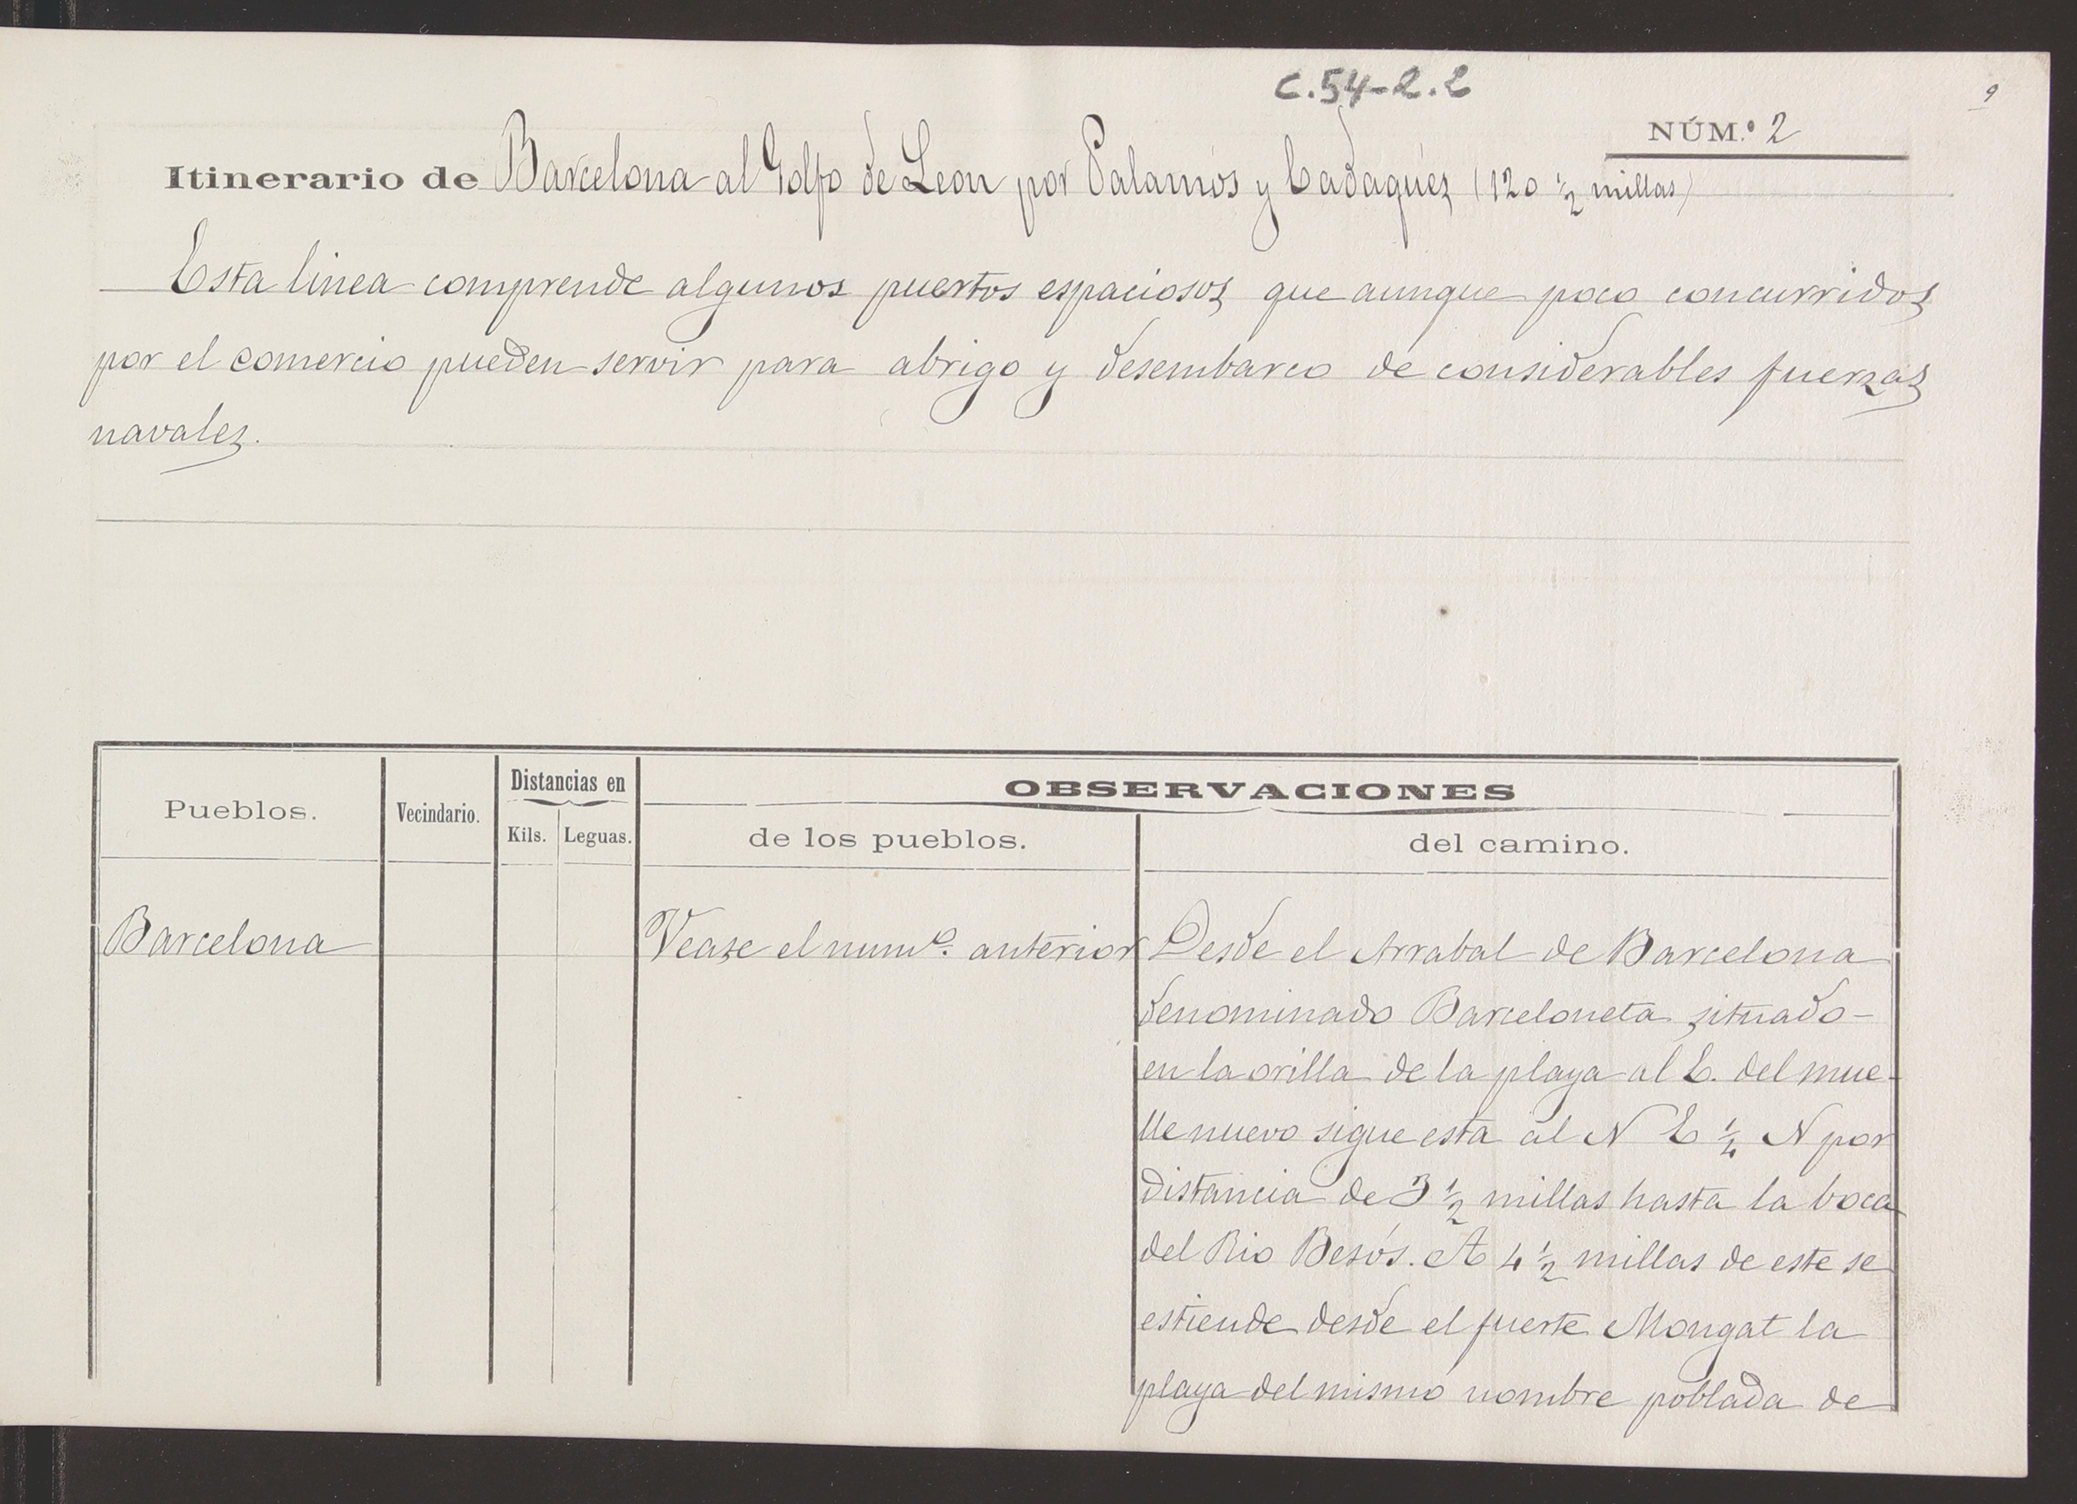 C.54-2.2
9
NÚM.º 2
Itinerario de Barcelona al Golfo de Leon por Palamós y Cadaquéz (120 ½ millas)
Esta linea comprende algunos puertos espaciosos que aunque poco concurridos
por el comercio pueden servir para abrigo y desembarco de considerables fuerzas
navales.
Pueblos.
Vecindario.
Distancias en
Kils.
Leguas.
OBSERVACIONES
de los pueblos.
del camino.
Barcelona
Vease el numº. anterior
Desde el Arrabal de Barcelona
denominado Barceloneta situado-
en la orilla de la playa al E. del mue-
lle nuevo sigue esta al N E ¼ N por
distancia de 3 ½ millas hasta la boca
del Rio Besós. A 4 ½ millas de este se
estiende desde el fuerte Mongat la
playa del mismo nombre poblada de